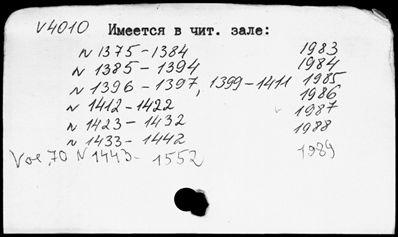 V4010 Имеется в чит. зале:
N 1375-1384 1983
N 1385-1394 1984
N 1396-1397, 1399-1411 1985
N 1412-1422 1986
N 1423-1432 1987
N 1433-1442 1988
Vol 70 N 1443- 1552 1989